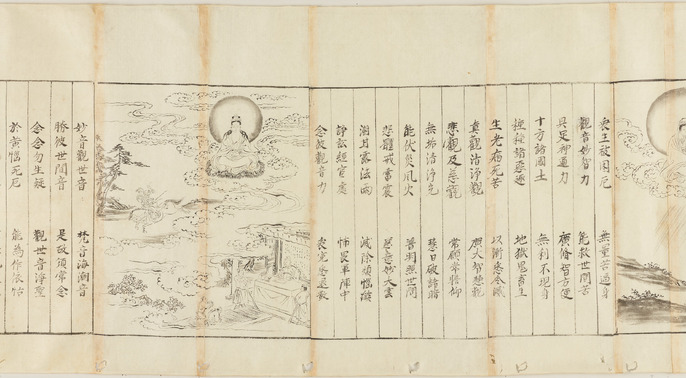 衆生被困厄 無量苦逼身
觀音妙智力 能救世間苦
具足神通力 廣修智方便
十方諸國土 無刹不現身
種種諸惡趣 地獄鬼畜生
生老病死苦 以漸悉令滅
真觀清淨觀 廣大智慧觀
悲觀及慈觀 常願常瞻仰
無垢清淨光 慧日破諸暗
能伏災風火 普明照世間
悲體戒雷震 慈意妙大雲
澍甘露法雨 滅除煩惱焰
諍訟經官處 怖畏軍陣中
念彼觀音力 衆怨悉退散
妙音觀世音 梵音海潮音
勝彼世間音 是故須常念
念念勿生疑 觀世音淨聖
於苦惱死厄 能為作依怙